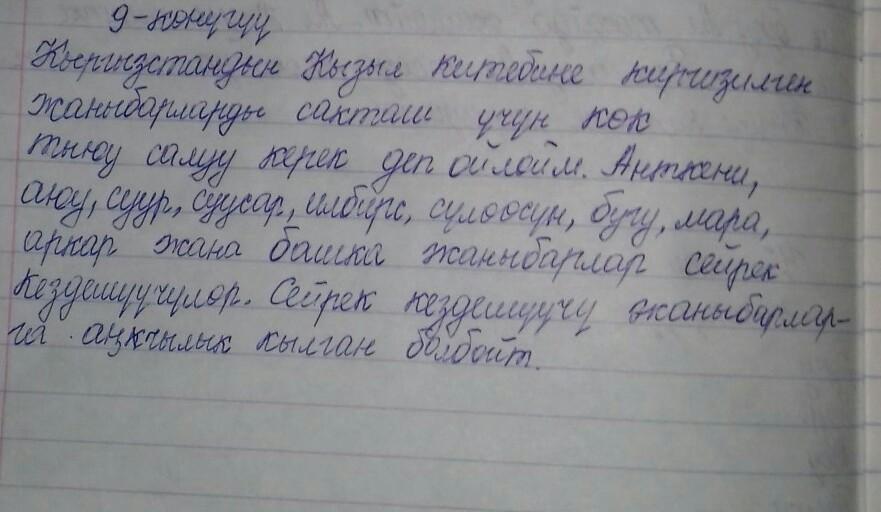 9-көнүгүү
Кыргызстандын Кызыл китебине киргизилген
жаныбарларды сакташ үчүн көк
тыюу салуу керек деп ойлойм. Анткени,
аюу, суур, суусар, илбирс, сүлөөсүн, бугу, марал,
аркар жана башка жаныбарлар сейрек
кездешүүчүлөр. Сейрек кездешүүчү жаныбарлар-
га аңкчылык кылган болбойт.